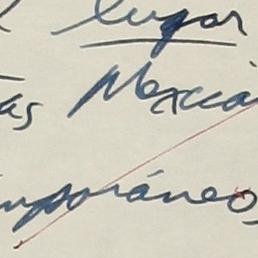 lugar
as Mexica
mporáneos